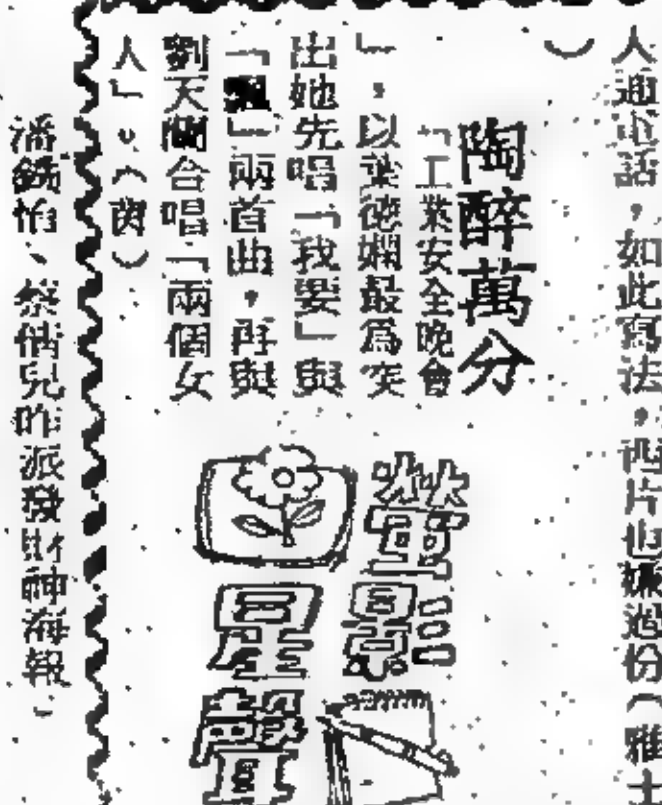 人通電話，如此寫法，西片也嫌過份（雅士
）
陶醉萬分
「工業安全晚會
」，以葉德嫻最為突
出她先唱「我要」與
「」兩首曲，再與
劉天蘭合唱「兩個女
人」。（茵）
螢影
星聲
潘錦怡、蔡俏兒昨派發財神海報。